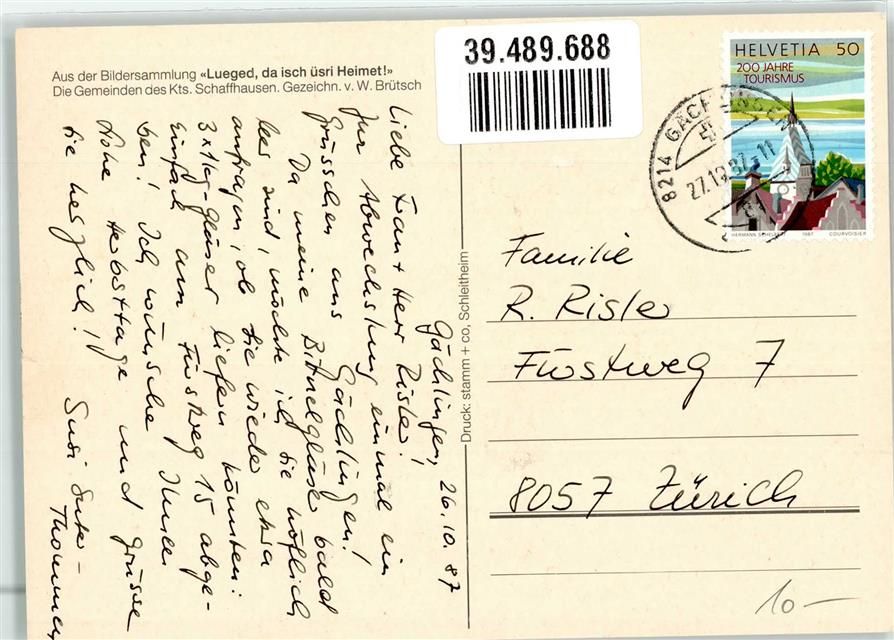 Aus der Bildersammlung «Lueged, da isch üsri Heimet!»
Die Gemeinden des Kts. Schaffhausen. Gezeichn. v. W. Brütsch
39.489.688
HELVETIA 50
200 JAHRE
TOURISMUS
HERMANN SCHELBERT 1987 COURVOISIER
8214 GÄCHLINGEN
27.10.87-11
Gächlingen, 26.10.87
Liebe Frau + Herr Risler!
Zur Abwechslung einmal ein
Grüsschen aus Gächlingen!
Da meine Bitnelgläser bald
leer sind, möchte ich Sie höflich
anfragen, ob Sie wieder etwa
3x1kg-Gläser liefern könnten:
Einfach am Fürstweg 15 abge-
ben! Ich wünsche Ihnen
schöne Herbsttage und grüsse
Sie herzlich!
Susi Suter-
Thommen
Druck: stamm + co, Schleitheim
Familie
R. Risler
Fürstweg 7
8057 Zürich
10.-